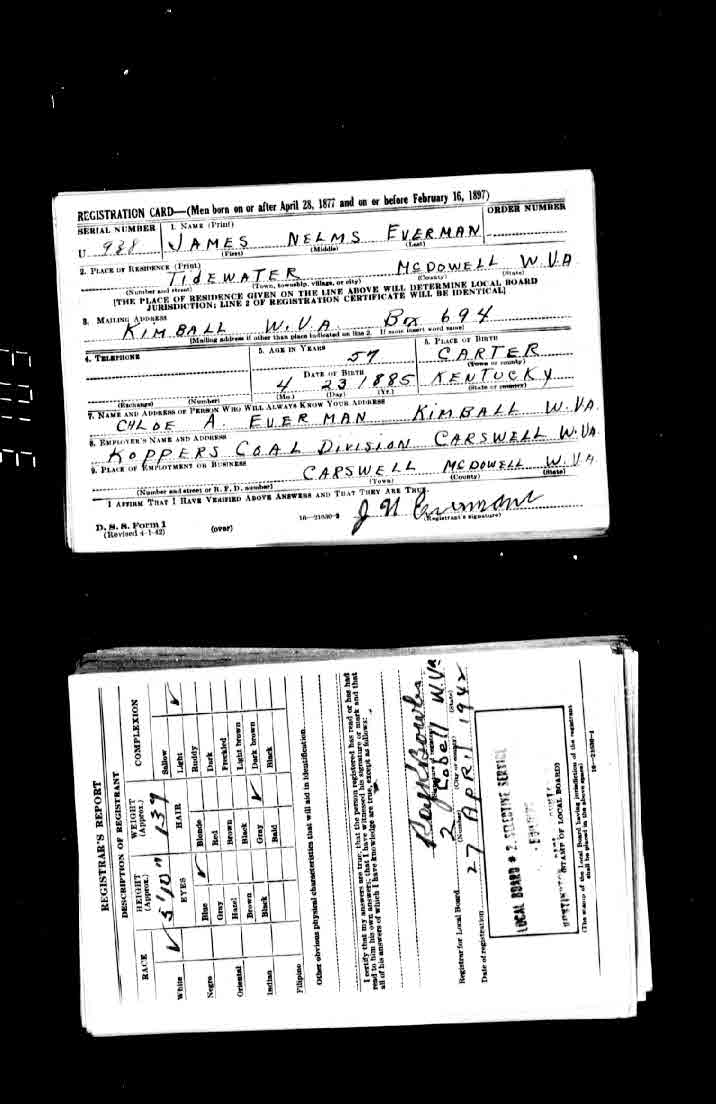 REGISTRATION CARD—(Men born on or after April 28, 1877 and on or before February 16, 1897)
SERIAL NUMBER
1. NAME (Print)
ORDER NUMBER
U 988
JAMES NELMS EVERMAN
(First) (Middle) (Last)
2. PLACE OF RESIDENCE (Print)
TIDEWATER MCDOWELL W.VA
(Number and street) (Town, township, village, or city) (County) (State)
[THE PLACE OF RESIDENCE GIVEN ON THE LINE ABOVE WILL DETERMINE LOCAL BOARD
JURISDICTION; LINE 2 OF REGISTRATION CERTIFICATE WILL BE IDENTICAL]
3. MAILING ADDRESS
KIMBALL W.VA. Box 694
[Mailing address if other than place indicated on line 2. If same insert word same]
4. TELEPHONE
5. AGE IN YEARS
57
6. PLACE OF BIRTH
CARTER
(Town or county)
DATE OF BIRTH
4 23 1885
KENTUCKY
(Exchange) (Number)
(Mo.) (Day) (Yr.)
(State or country)
7. NAME AND ADDRESS OF PERSON WHO WILL ALWAYS KNOW YOUR ADDRESS
CHLOE A. EVERMAN KIMBALL W.VA.
8. EMPLOYER'S NAME AND ADDRESS
KOPPERS COAL DIVISION CARSWELL W.VA.
9. PLACE OF EMPLOYMENT OR BUSINESS
CARSWELL MCDOWELL W.VA
(Number and street or R. F. D. number) (Town) (County) (State)
I AFFIRM THAT I HAVE VERIFIED ABOVE ANSWERS AND THAT THEY ARE TRUE.
J N Everman
(Registrant's signature)
D. S. S. Form 1
(Revised 4-1-42)
(over)
16—21630-2
REGISTRAR'S REPORT
DESCRIPTION OF REGISTRANT
RACE
HEIGHT
(Approx.)
WEIGHT
(Approx.)
COMPLEXION
5'10"
139
White ✓
EYES
HAIR
Sallow
Light ✓
Negro
Blue ✓
Blonde
Ruddy
Gray
Red
Dark
Oriental
Hazel
Brown
Freckled
Brown
Black
Light brown
Indian
Black
Gray ✓
Dark brown
Bald
Black
Filipino
Other obvious physical characteristics that will aid in identification
I certify that my answers are true; that the person registered has read or has had
read to him his own answers; that I have witnessed his signature or mark and that
all of his answers of which I have knowledge are true, except as follows:
(Signature of registrar)
Registrar for Local Board 2 W.Va
(Number) (City or county) (State)
Date of registration 27 APRIL 1942
LOCAL BOARD # 2 SELECTIVE SERVICE
(STAMP OF LOCAL BOARD)
(The stamp of the Local Board having jurisdiction of the registrant
shall be placed in the above space)
16—21630-1